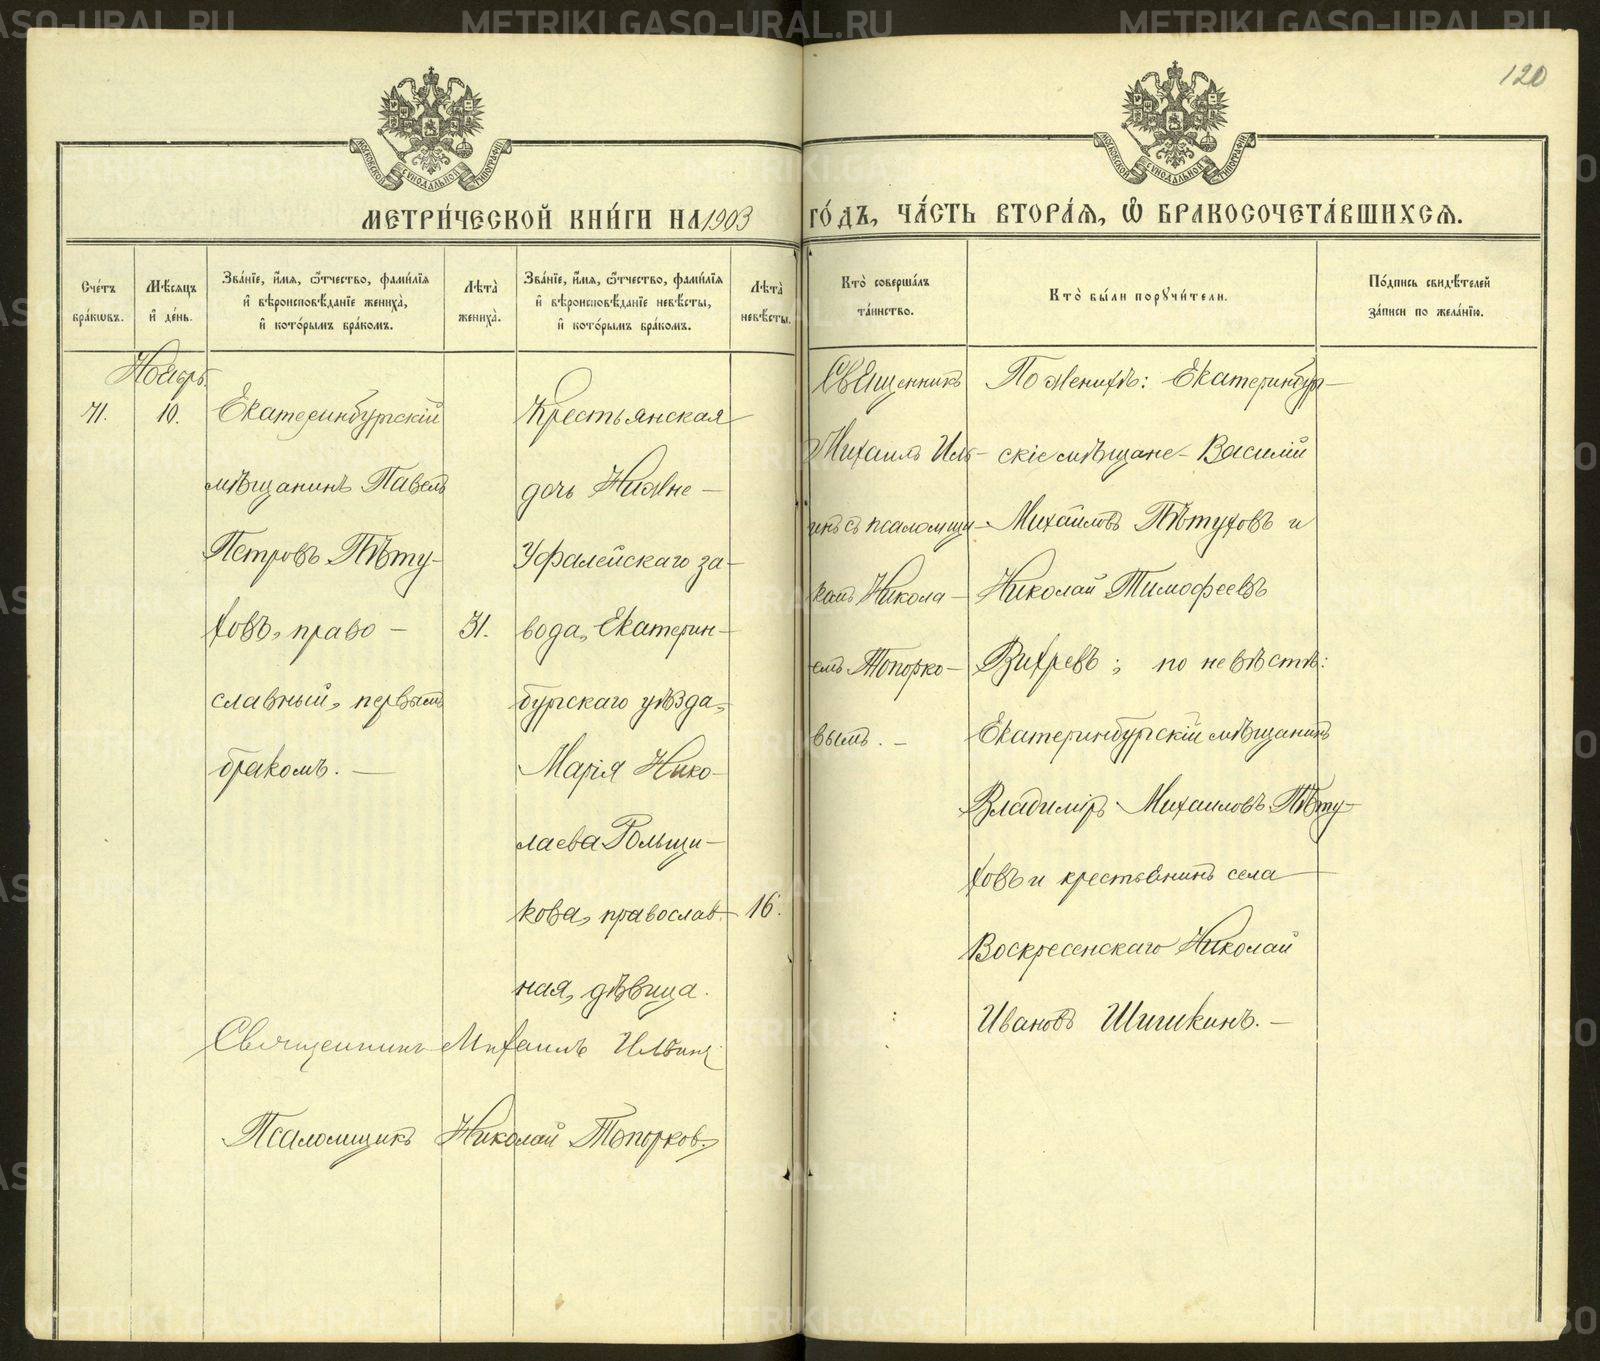 120
МОСКОВСКОЙ СѴНОДАЛЬНОЙ ТИПОГРАФІИ
МОСКОВСКОЙ СѴНОДАЛЬНОЙ ТИПОГРАФІИ
МЕТРИ́ЧЕСКОЙ КНИ́ГИ НА 1903 ГО́ДЪ, ЧА́СТЬ ВТОРА́Ѧ, Ѽ БРАКОСОЧЕТА́ВШИХСѦ.
Сче́тъ
бра́кѡвъ.
Мѣ́сѧцъ
и҆ де́нь.
Зва́нїе, и҆́мѧ, ѻ҆́тчество, фами́лїѧ
и҆ вѣроисповѣ́данїе жениха̀,
и҆ кото́рымъ бра́комъ.
Лѣта̀
жениха̀.
Зва́нїе, и҆́мѧ, ѻ҆́тчество, фами́лїѧ
и҆ вѣроисповѣ́данїе невѣ́сты,
и҆ кото́рымъ бра́комъ.
Лѣта̀
невѣ́сты.
Кто̀ соверша́лъ
та́инство.
Кто̀ бы́ли порꙋчи́тели.
По́дпись свидѣ́телей
за́писи по жела́нїю.
Ноябрь.
71.
10.
Екатеринбургскій
мѣщанинъ Павелъ
Петровъ Пѣту-
ховъ, право-
славный, первымъ
бракомъ. —
31.
Крестьянская
дочь Нижне-
Уфалейскаго за-
вода, Екатерин-
бургскаго уѣзда,
Марія Нико-
лаева Гольщи-
кова, православ-
ная, дѣвица.
16.
Священникъ
Михаилъ Иль-
инъ съ псаломщи-
комъ Никола-
емъ Топорко-
вымъ. —
По женихѣ: Екатеринбург-
скіе мѣщане Василій
Михайловъ Пѣтуховъ и
Николай Тимофеевъ
Вихревъ; по невѣстѣ:
Екатеринбургскій мѣщанинъ
Владиміръ Михаиловъ Пѣту-
ховъ и крестьянинъ села
Воскресенскаго Николай
Ивановъ Шишкинъ. —
Священникъ Михаилъ Ильинъ
Псаломщикъ Николай Топорковъ
METRIKI.GASO-URAL.RU